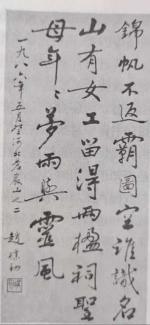 錦帆不返霸圖空誰識名
山有女工留得兩楹祠聖
母年〻夢雨與靈風
一九八六年五月登河北蒼岩山之二
趙樸初